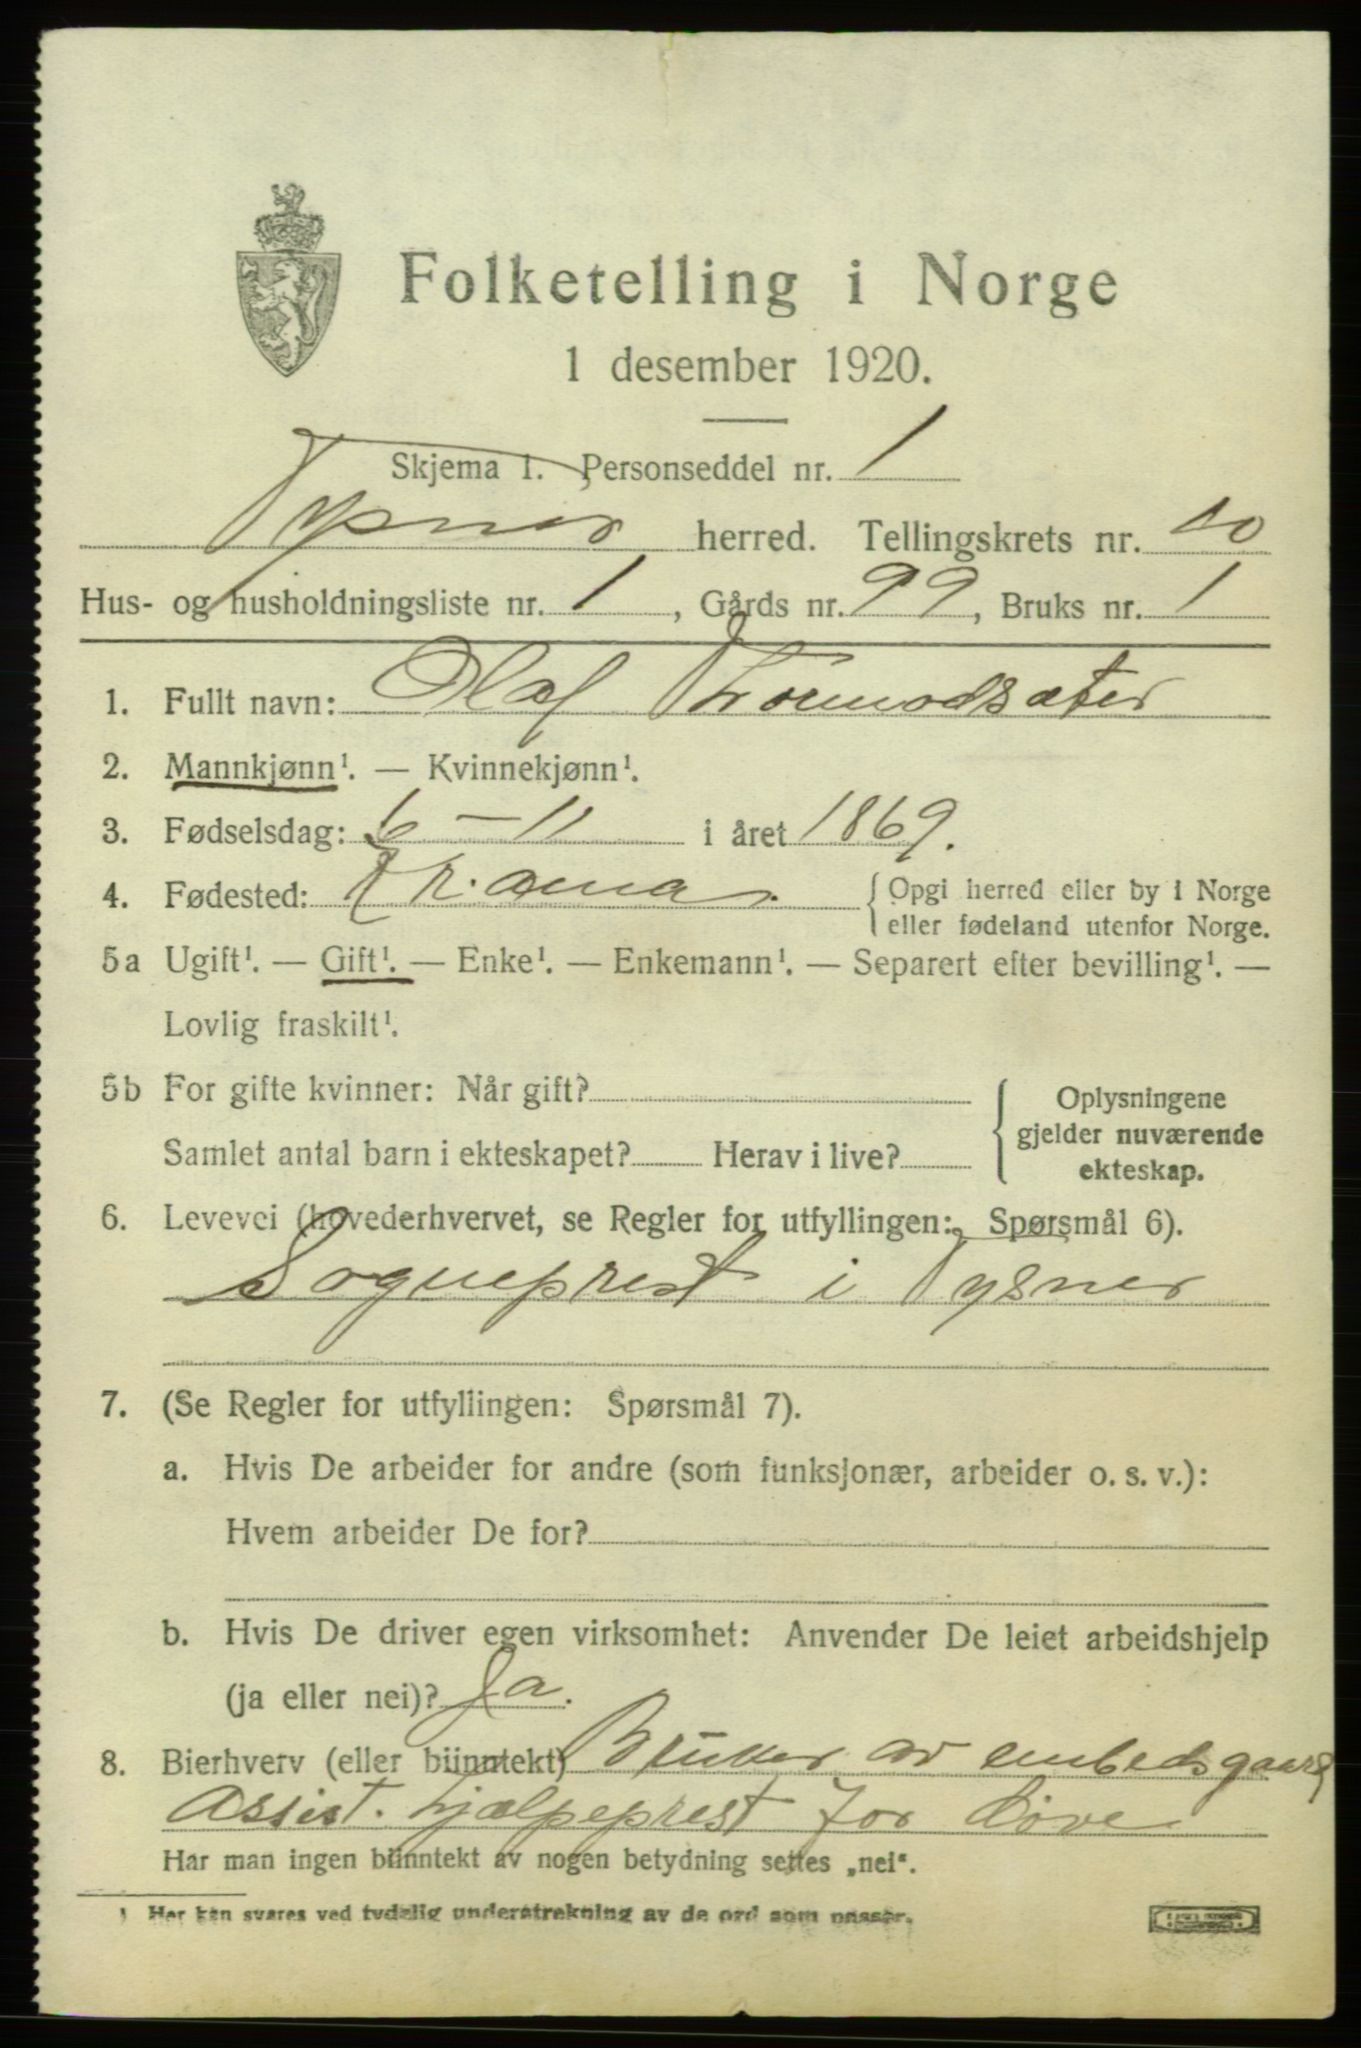 Folketelling i Norge
1 desember 1920.
Skjema 1. Personseddel nr. 1
Tysnes herred. Tellingskrets nr. 10
Hus- og husholdningsliste nr. 1, Gårds nr. 99, Bruks nr. 1
1. Fullt navn: Olaf Thormodsæter
2. Mannkjønn¹. — Kvinnekjønn¹.
3. Fødselsdag: 6 – 11 i året 1869.
4. Fødested: Kr.ania.
{ Opgi herred eller by i Norge
eller fødeland utenfor Norge.
5a Ugift¹. — Gift¹. — Enke¹. — Enkemann¹. — Separert efter bevilling¹. —
Lovlig fraskilt¹.
5b For gifte kvinner: Når gift?
Samlet antal barn i ekteskapet? Herav i live?
{ Oplysningene
gjelder nuværende
ekteskap.
6. Levevei (hovederhvervet, se Regler for utfyllingen: Spørsmål 6).
Sogneprest i Tysnes
7. (Se Regler for utfyllingen: Spørsmål 7).
a. Hvis De arbeider for andre (som funksjonær, arbeider o. s. v.):
Hvem arbeider De for?
b. Hvis De driver egen virksomhet: Anvender De leiet arbeidshjelp
(ja eller nei)? Ja.
8. Bierhverv (eller biinntekt) Bruker av embedsgaard
Assist. hjælpeprest for døve
Har man ingen biinntekt av nogen betydning settes „nei“.
¹ Her kan svares ved tydelig understrekning av de ord som passer.